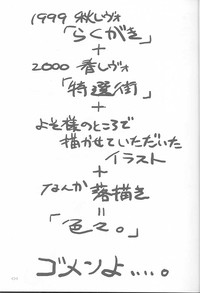 1999 秋レヴォ
「らくがき」
+
2000 春レヴォ
「特選街」
+
よそ様のところで
描かせていただいた
イラスト
+
なんか落描き
=
「色々。」
ゴメンよ……。